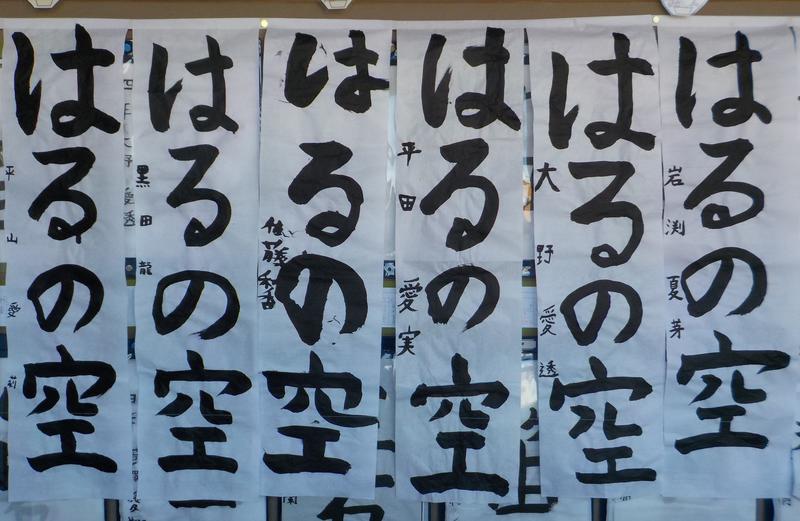 はるの空
岩渕夏芽
はるの空
大野愛透
はるの空
平田愛実
はるの空
佐藤
はるの空
黒田龍
はるの空
平山愛莉
四年大野愛透